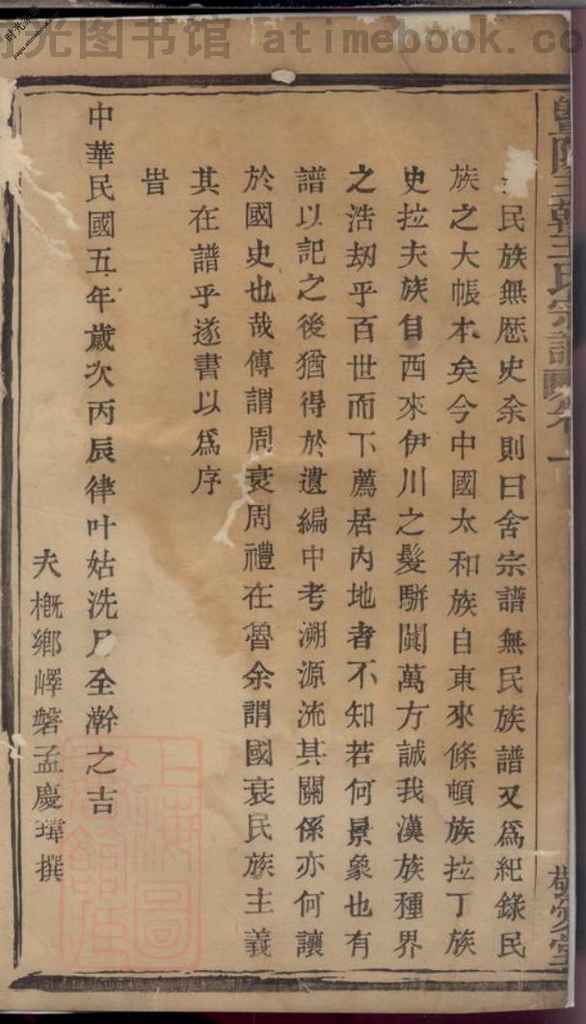 光图书馆 atimebook.co
暨陽
王氏宗譜
卷一
敬愛堂
民族無歷史余則曰舍宗譜無民族譜又為紀錄民
族之大帳本矣今中國大和族自東來條頓族拉丁族
史拉夫族自西來伊川之髮駢闐萬方誠我漢族種界
之浩劫乎百世而下薦居內地者不知若何景象也有
譜以記之後猶得於遺編中考溯源流其關係亦何讓
於國史也哉傳謂周衰周禮在魯余謂國衰民族主義
其在譜乎遂書以為序
旹
中華民國五年歲次丙辰律叶姑洗月全澣之吉
夫概鄉嶧磐孟慶瑋撰